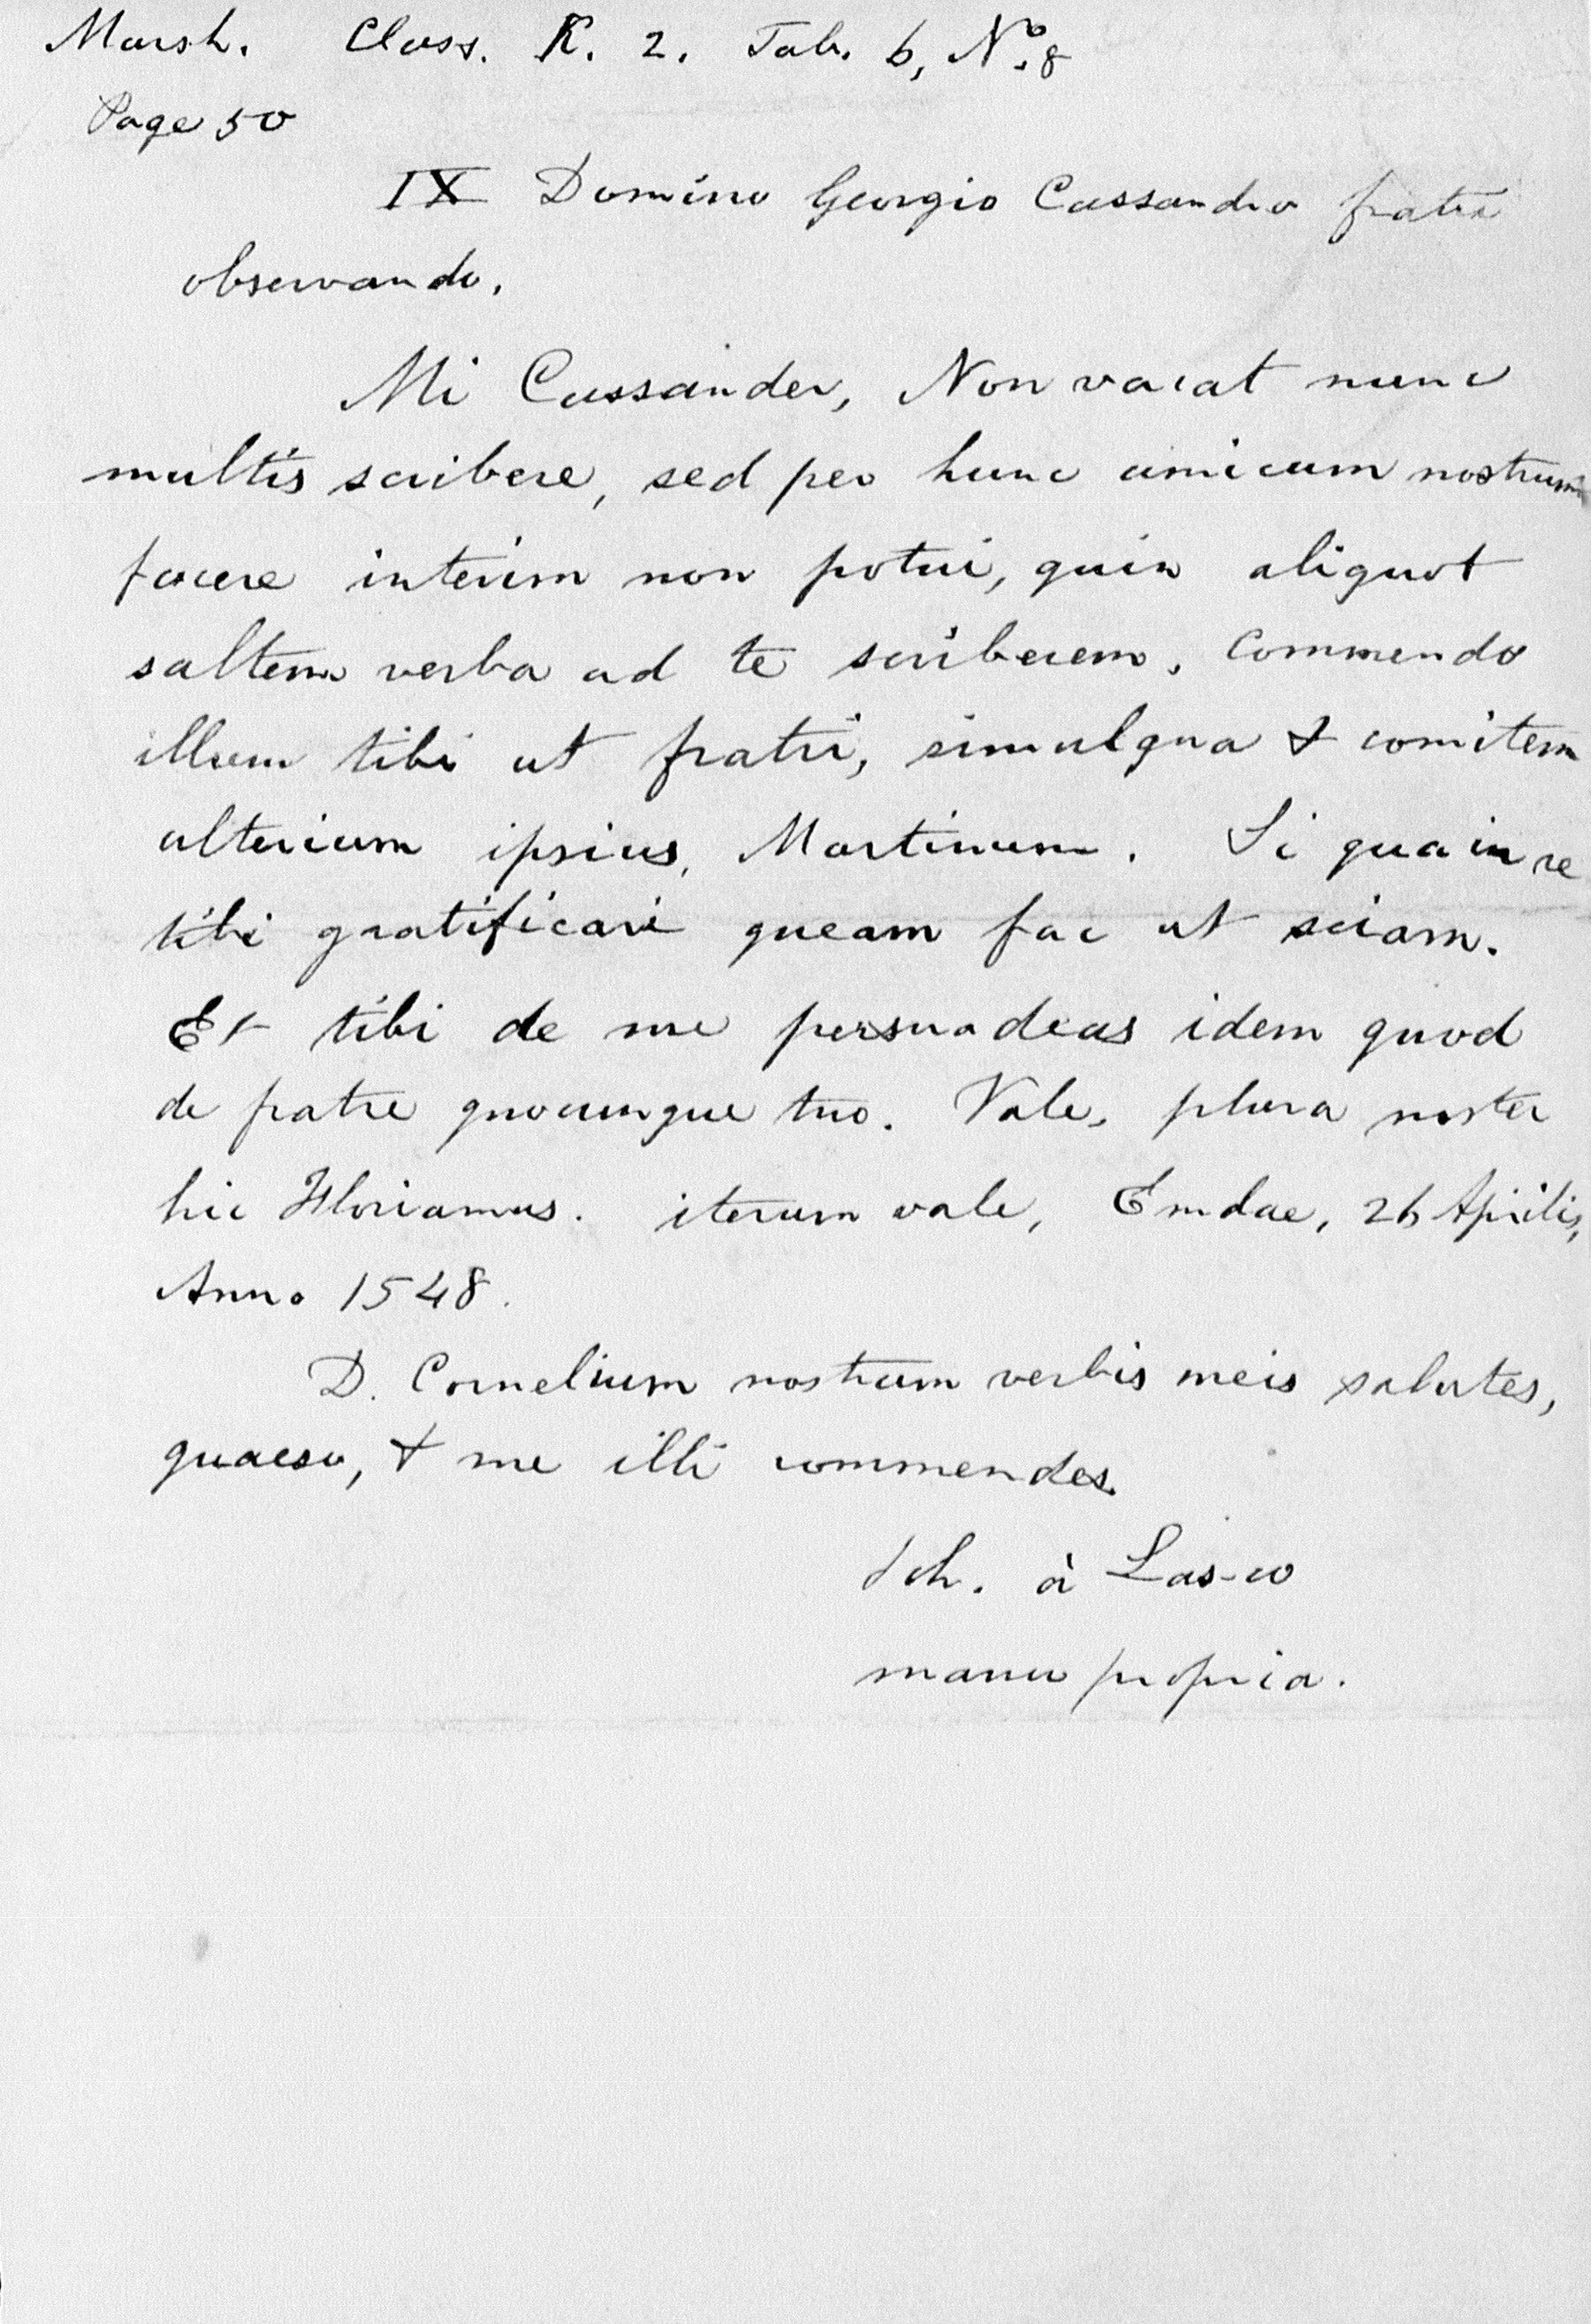 Marsh. Class. K. 2. Tab. 6, No. 8
Page 50
IX Domino Georgio Cassandro fratri
observando.
Mi Cassander, Non vacat nunc
multis scribere, sed per hunc amicum nostrum
facere interim non potui, quin aliquot
saltem verba ad te scriberem. Commendo
illum tibi ut fratri, simulqua & comitem
alterium ipsius, Martinum. Si qua in re
tibi gratificari queam fac ut sciam.
Et tibi de me persuadeas idem quod
de fratre quocunque tuo. Vale, plura noster
hic Floriamus. iterum vale, Emdae, 26 Aprilis,
Anno 1548.
D. Cornelium nostrum verbis meis salutes,
quaeso, & me illi commendes.
Joh. à Las-co
manu propria.